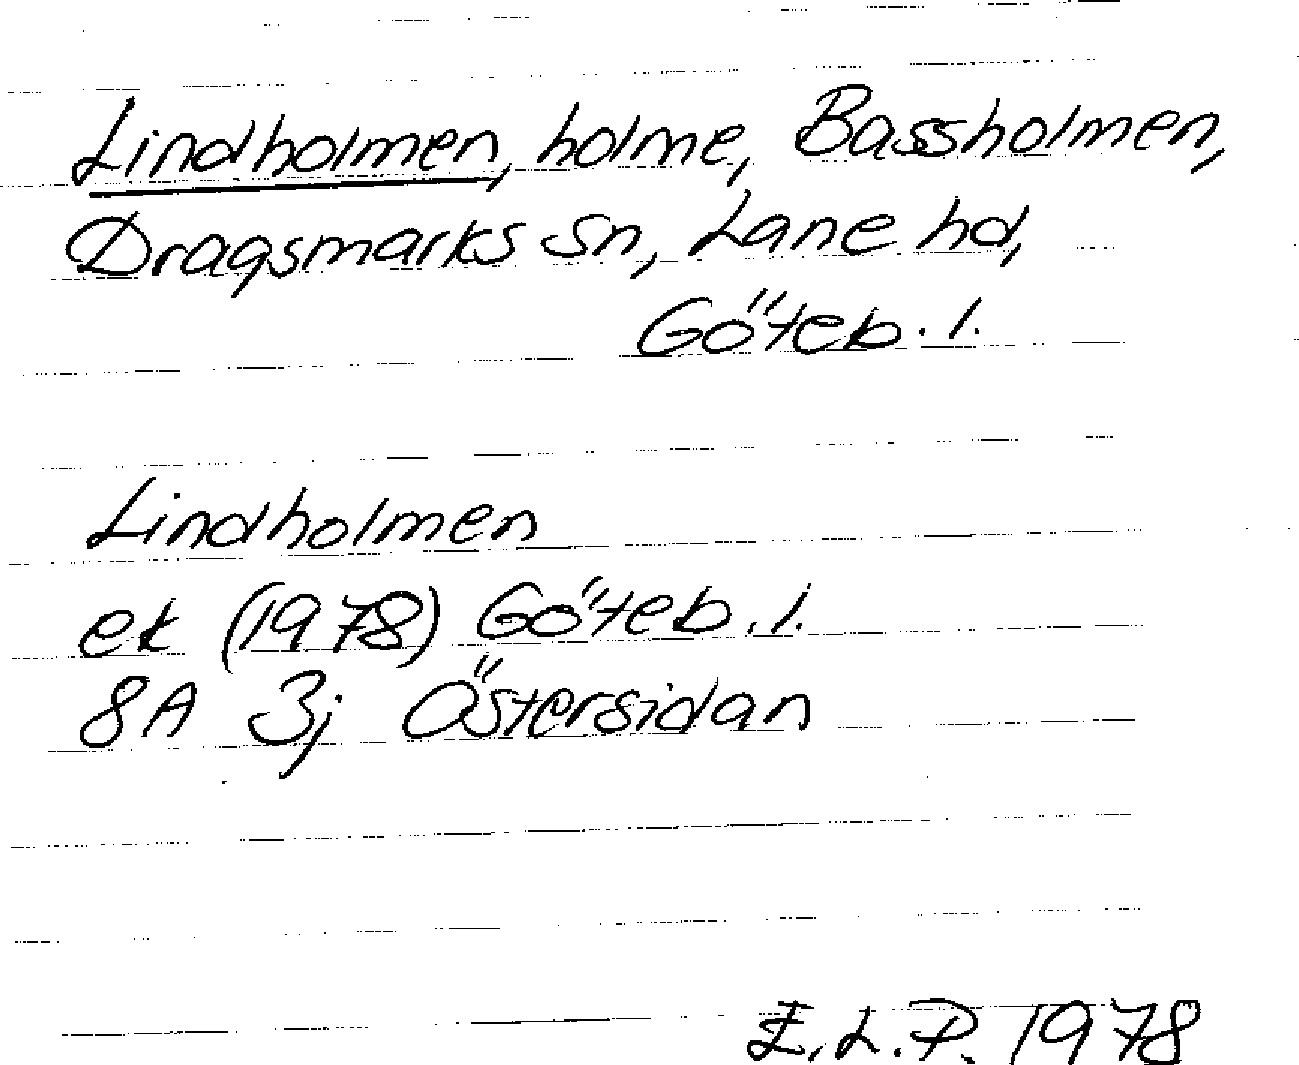 Lindholmen, holme, Bassholmen,
Dragsmarks sn, Lane hd,
Göteb. l.
Lindholmen
ek (1978) Göteb. l.
8A 3j Östersidan
E.L.P. 1978